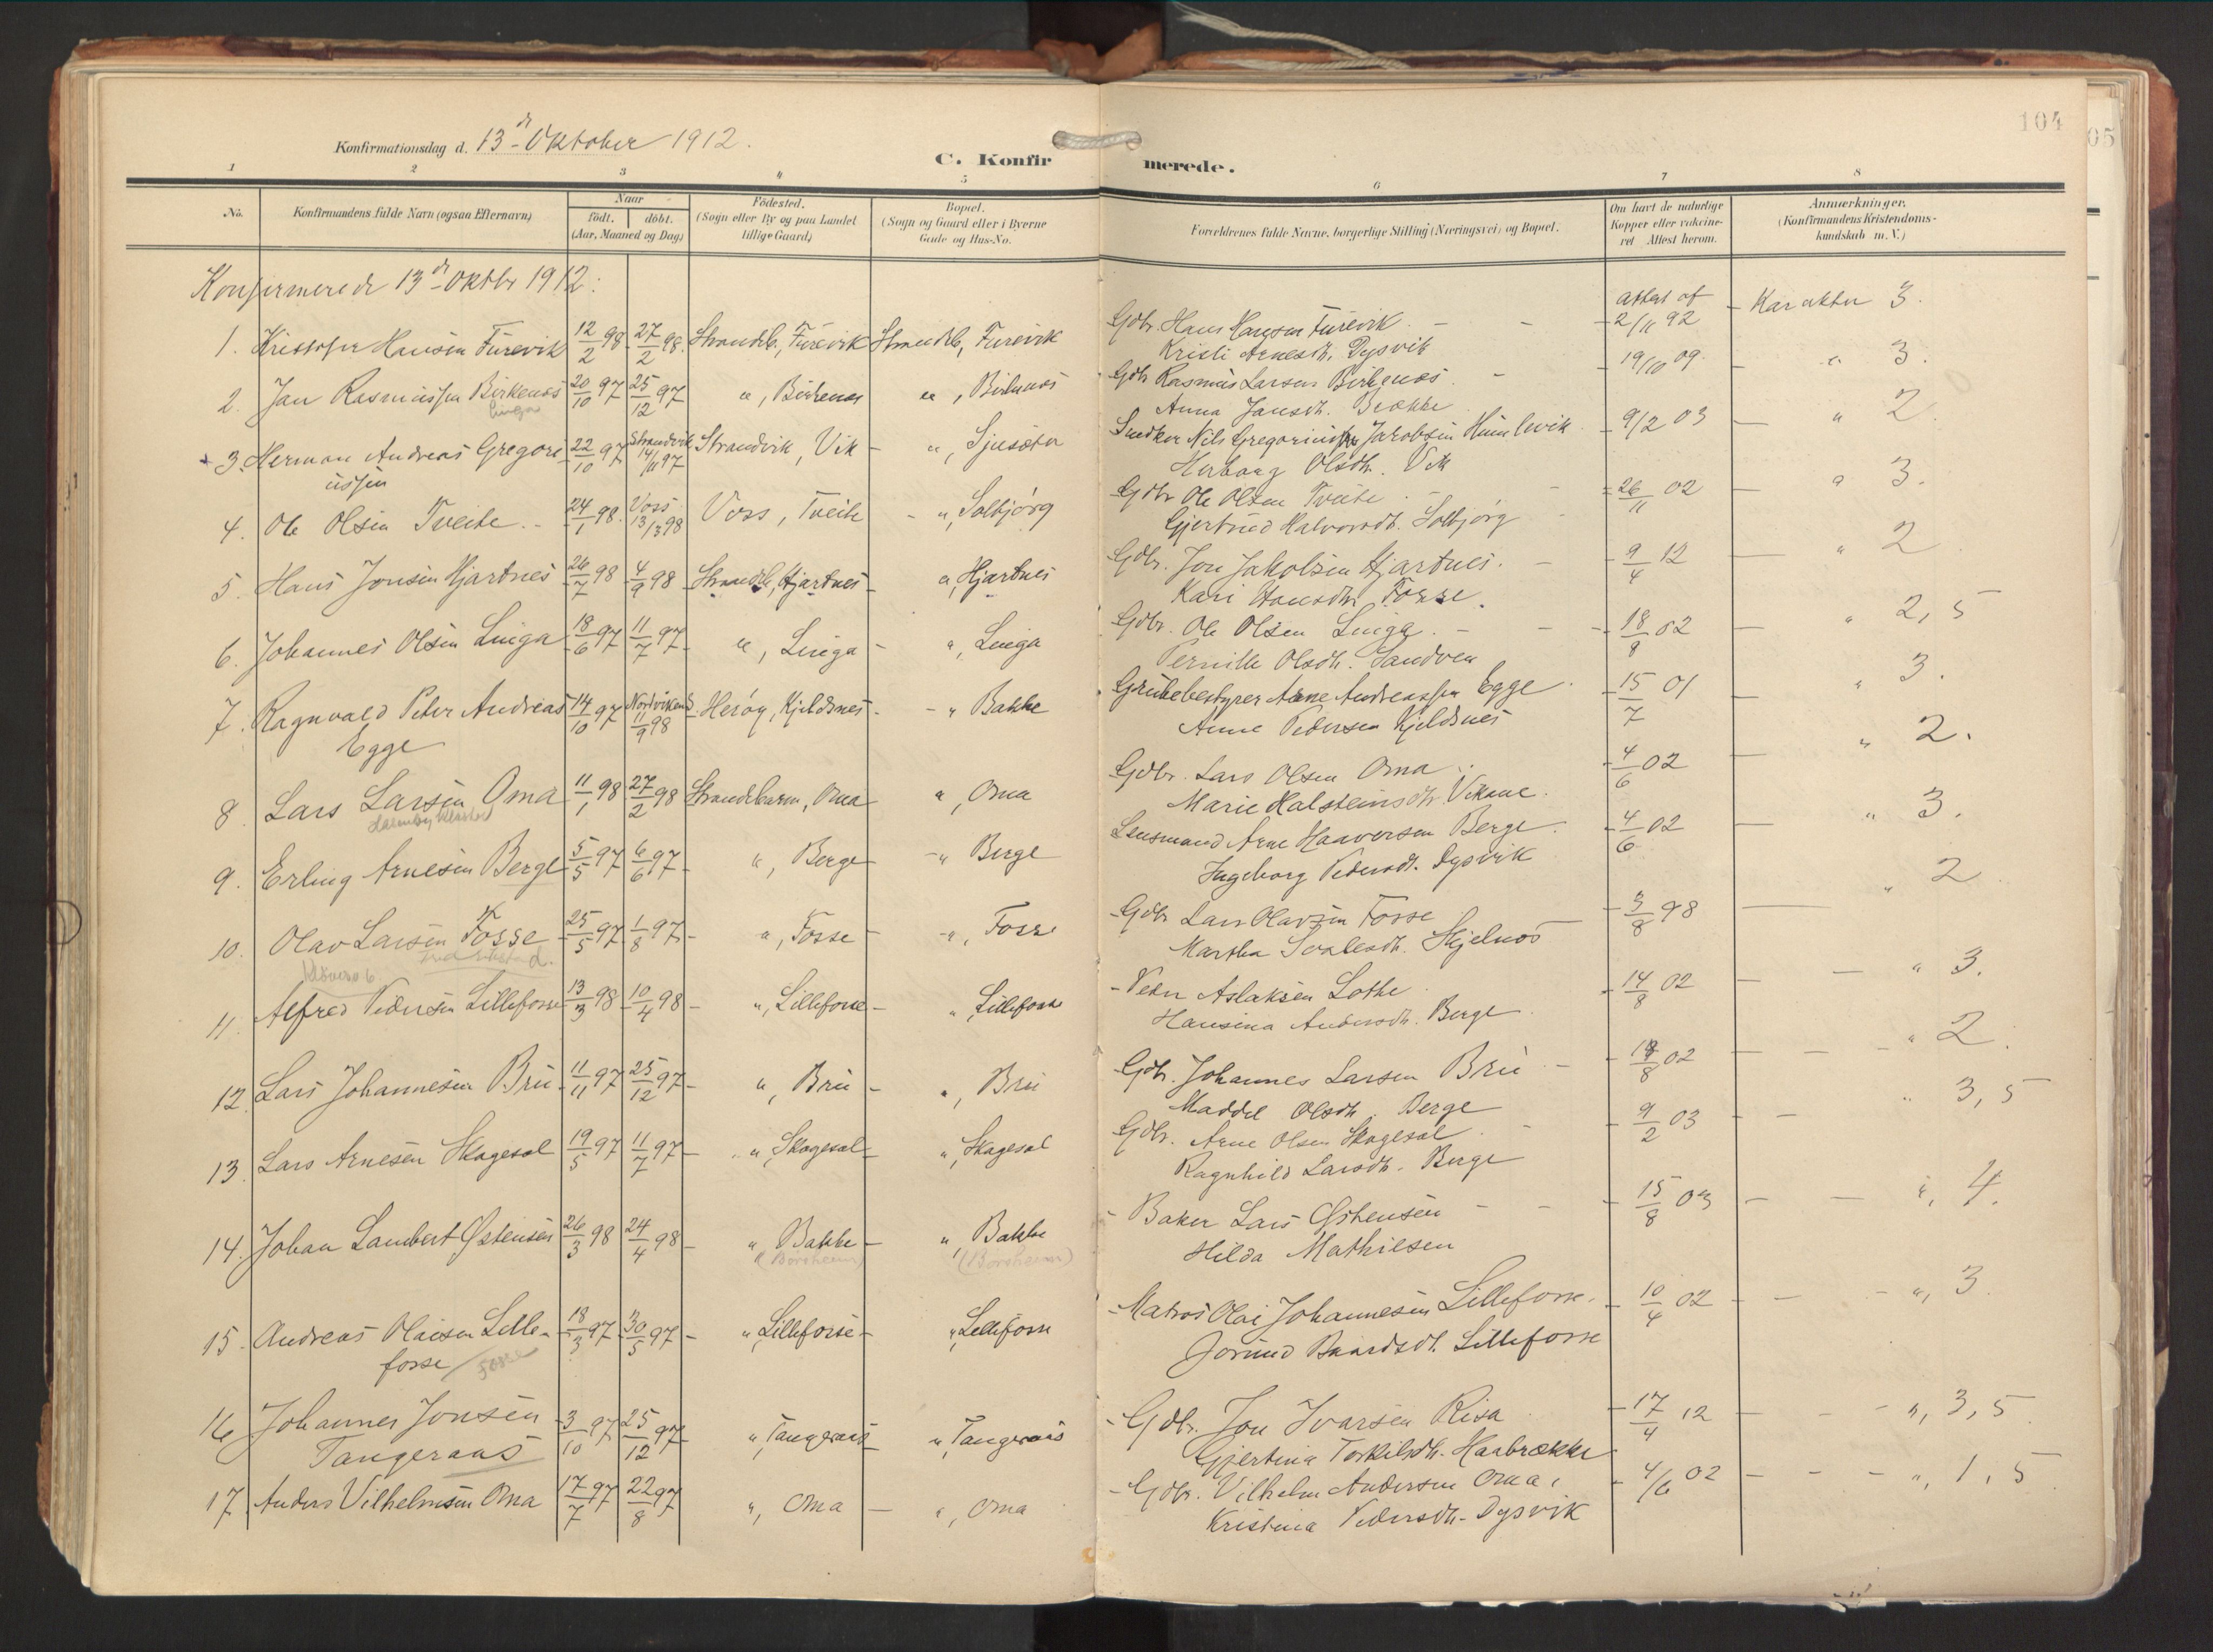 104
05
Konfirmationsdag d. 13de Oktober 1912.
C. Konfirmerede.
1 2 3 4 5 6 7 8
No. Konfirmandens fulde Navn (ogsaa Efternavn) Naar födt. döbt. (Aar, Maaned og Dag) Födested. (Sogn eller By og paa Landet tillige Gaard) Bopæl. (Sogn og Gaard eller i Byerne Gade og Hus-No. Forældrenes fulde Navne, borgerlige Stilling (Næringsvei) og Bopæl. Om havt de naturlige Kopper eller vaccineret. Attest herom. Anmærkninger. (Konfirmandens Kristendomskundskab m. V.)
Konfirmerede 13de Oktbr 1912:
1. Kristofer Hansen Furevik 12/2 98 27/2 98. Strandb., Furevik Strandb, Furevik Gdbr. Hans Hansen Furevik attest af 2/11 92 Karakter 3.
Kristi Arnesdt. Dysvik
2. Jan Rasmussen Birkenes 20/10 97 25/12 97 ", Birkenes ", Birkenes Gdbr Rasmus Larsen Birkenes 19/10 09. " 3.
Linga
Anna Jansdt. Brække
3. Herman Andreas Gregori 22/10 97 Strandvik 14/11 97 Strandvik, Vik ", Sjusæter Snedker Nils Gregoriussen Jakobsen Humlevik 9/2 03 " 2.
ussen
Herborg Olsdt. Vik
4. Ole Olsen Tveite 24/1 98. Voss 13/3 98 Voss, Tveite ", Solbjörg Gdbr Ole Olsen Tveite 26/11 02 " 3.
Gjertrud Halvorsdt. Solbjörg
5. Hans Jonsen Hjartnes 26/7 98 4/9 98 Strandb, Hjartnes ", Hjartnes Gdbr. Jon Jakobsen Hjartnes. 9/4 12 " 2.
Kari Hansdtr Fosse.
6. Johannes Olsen Linga 18/6 97 11/7 97 ", Linga ", Linga Gdbr. Ole Olsen Linga. 18/9 02 " 2,5
Pernille Olsdt. Sandven
7. Ragnvald Peter Andreas 14/10 97 11/9 98 Herøy, Kjeldsnes " Bakke Grubebestyrer Arne Andreassen Egge 15/7 01 " 3.
Egge
Anne Pedersen Kjeldsnes
8. Lars Larsen Oma 11/1 98 27/2 98 Strandebarm, Oma ", Oma Gdbr. Lars Olsen Oma 4/6 02 " 2.
Marie Halsteinsdtr. Vikane.
9. Erling Arnesen Berge 5/5 97 6/6 97 ", Berge " Berge Lensmand Arne Haaversen Berge. 4/6 02 " 3.
Ingeborg Pedersdt. Dysvik
10. Olav Larsen Fosse 25/5 97 1/8 97 ", Fosse ", Fosse Gdbr Lars Olavsen Fosse 3/8 98 " 2
Martha Sjovlesdt. Skjelnes
11. Alfred Pedersen Lillefosse 13/3 98 10/4 98 ", Lillefosse ", Lillefosse Peder Aslaksen Lothe 14/8 02 " 3.
Hansina Andersdt. Berge
12. Lars Johannesen Bru 11/11 97 25/12 97 ", Bru ", Bru Gdb. Johannes Larsen Bru 02 " 2.
Maddel Olsdt. Berge
13. Lars Arnesen Skogesal 19/5 97 11/7 97 ", Skogesal ", Skogesal Gdbr. Arne Olsen Skogesal 9/2 03 " 3,5
Ragnhild Larsdt. Berge
14. Johan Lambert Østensen 26/3 98 24/4 98 ", Bakke ", Bakke Baker Lars Østensen 15/8 03 ", 4.
(Borsheim) (Borsheim)
Hilda Mathiesen
15. Andreas Olaisen Lille- 18/3 97 30/5 97 ", Lillefosse ", Lillefosse Matros Olai Johannesen Lillefosse. 10/4 02 ", 3.
fosse / Fosse
Jorund Baardsdt. Lillefosse
16. Johannes Jonsen 3/10 97 25/12 97 ", Tangeraas ", Tangeraas Gdbr. Jon Ivarsen Risa 17/4 12 ", 3,5
Tangeraas
Gjertina Torkilsdt. Haabrække
17. Anders Vilhelmsen Oma 17/7 97 22/8 97 ", Oma ", Oma Gdbr. Vilhelm Andersen Oma, 4/6 02 ", 1,5
Kristina Pedersdtr. Dysvik